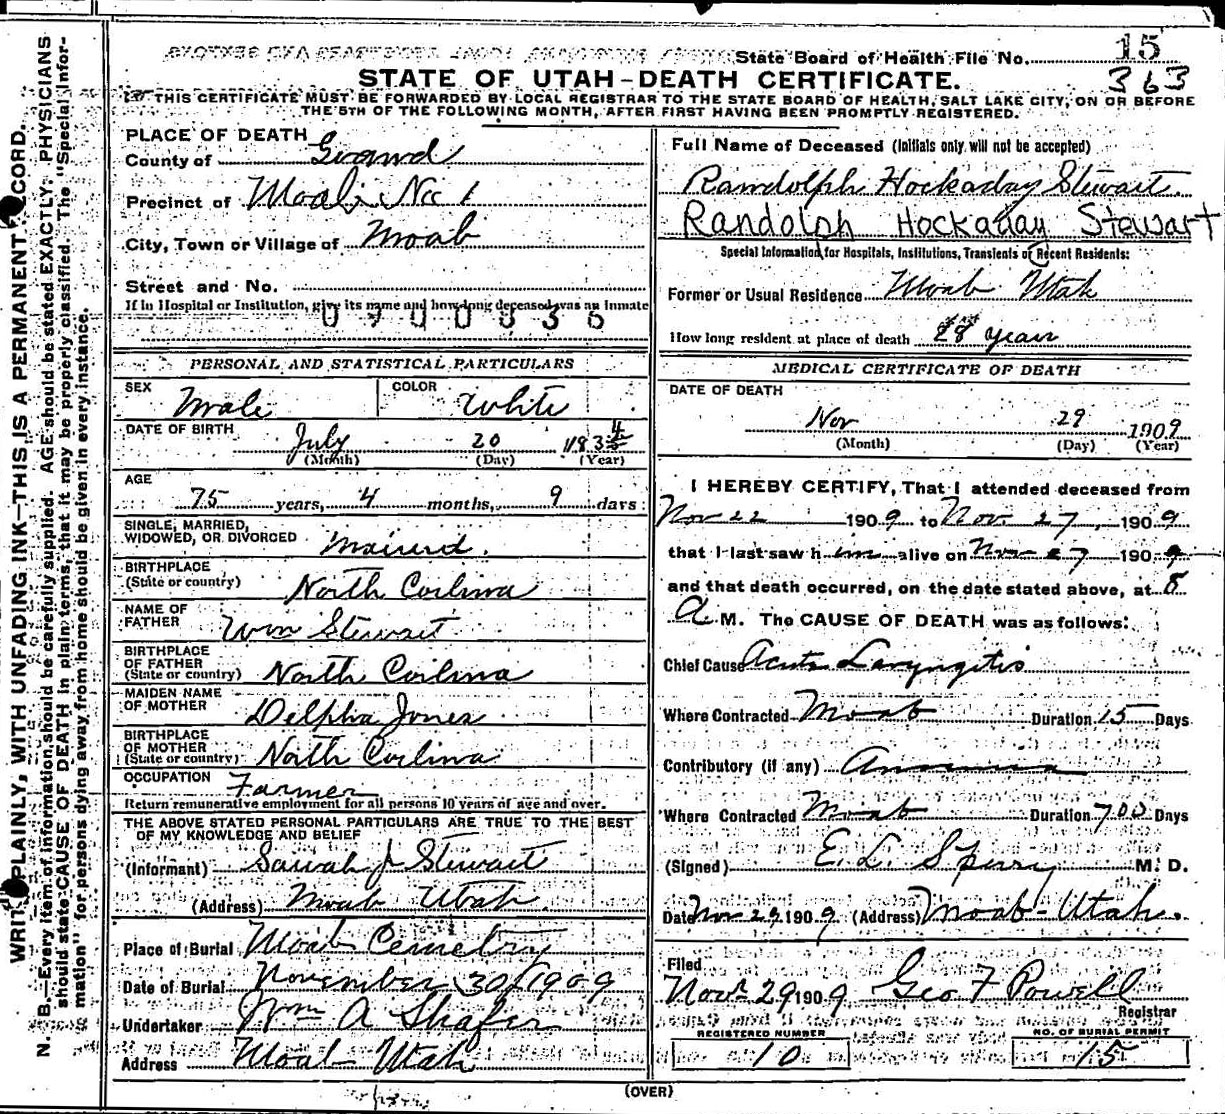 State Board of Health File No. 15
363
STATE OF UTAH-DEATH CERTIFICATE.
THIS CERTIFICATE MUST BE FORWARDED BY LOCAL REGISTRAR TO THE STATE BOARD OF HEALTH, SALT LAKE CITY, ON OR BEFORE
THE 5TH OF THE FOLLOWING MONTH, AFTER FIRST HAVING BEEN PROMPTLY REGISTERED.
WRITE PLAINLY, WITH UNFADING INK—THIS IS A PERMANENT RECORD.
N. B.—Every item of information should be carefully supplied. AGE should be stated EXACTLY. PHYSICIANS
should state CAUSE OF DEATH in plain terms, that it may be properly classified. The "Special Infor-
mation" for persons dying away from home should be given in every instance.
PLACE OF DEATH
County of Grand
Precinct of Moab No 1
City, Town or Village of Moab
Street and No.
If in Hospital or Institution, give its name and how long deceased was an inmate
PERSONAL AND STATISTICAL PARTICULARS
SEX Male
COLOR White
DATE OF BIRTH July 20 1834
(Month) (Day) (Year)
AGE
75 years, 4 months, 9 days
SINGLE, MARRIED,
WIDOWED, OR DIVORCED Mairied.
BIRTHPLACE
(State or country) North Corlina
NAME OF
FATHER Wm Stewart
BIRTHPLACE
OF FATHER
(State or country) North Corlina
MAIDEN NAME
OF MOTHER Delpha Jones
BIRTHPLACE
OF MOTHER
(State or country) North Corlina
OCCUPATION Farmer
Return remunerative employment for all persons 10 years of age and over.
THE ABOVE STATED PERSONAL PARTICULARS ARE TRUE TO THE BEST
OF MY KNOWLEDGE AND BELIEF
(Informant) Sarah J Stewart
(Address) Moab Utah
Place of Burial Moab Cemetry
Date of Burial November 30/1909
Undertaker Wm A Shafer
Address Moab Utah
Full Name of Deceased (Initials only will not be accepted)
Randolph Hockaday Stewart.
Randolph Hockaday Stewart
Special Information for Hospitals, Institutions, Transients or Recent Residents:
Former or Usual Residence Moab Utah
How long resident at place of death 28 years
MEDICAL CERTIFICATE OF DEATH
DATE OF DEATH
Nov 29 1909
(Month) (Day) (Year)
I HEREBY CERTIFY, That I attended deceased from
Nov 22 1909 to Nov. 27, 1909
that I last saw him alive on Nov 27 1909
and that death occurred, on the date stated above, at 8
A M. The CAUSE OF DEATH was as follows:
Chief Cause Acute Laryngitis
Where Contracted Moab Duration 15 Days
Contributory (if any) Anaemia
Where Contracted Moab Duration 700 Days
(Signed) E. L. Sperry M. D.
Date Nov 29 1909 (Address) Moab-Utah.
Filed
Nov 29 1909 Geo F Powell
Registrar
REGISTERED NUMBER
10
NO. OF BURIAL PERMIT
15
(OVER)